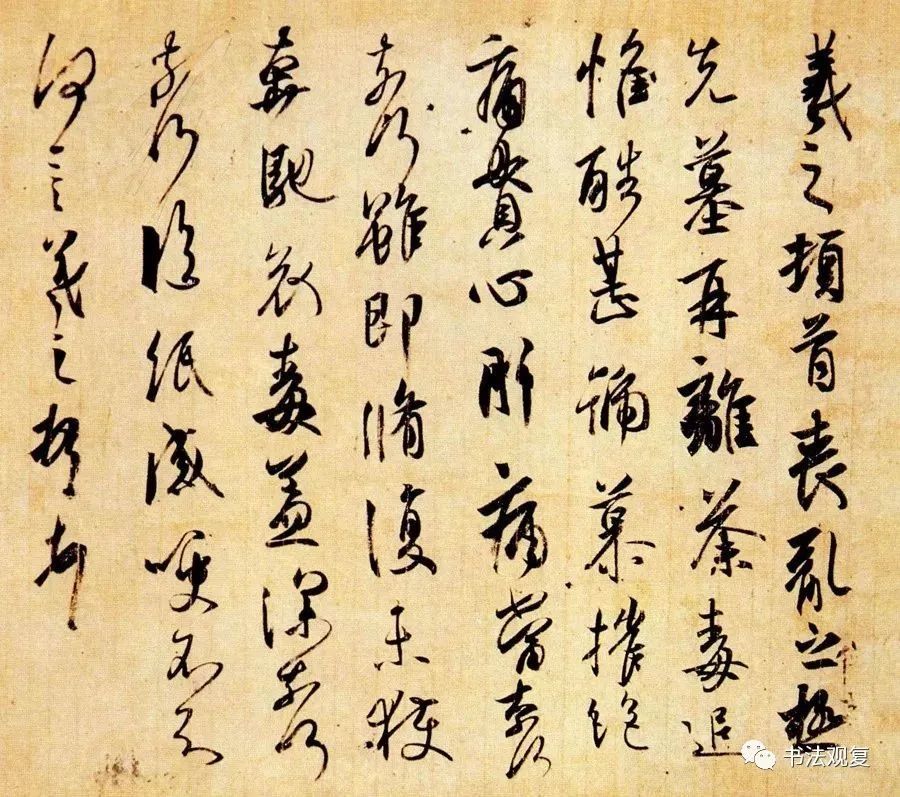 羲之頓首喪亂之極
先墓再離荼毒追
惟酷甚號慕摧絕
痛貫心肝痛當奈何
奈何雖即脩復未獲
奔馳哀毒益深奈何
奈何臨紙感哽不知
何言羲之頓首頓首
书法观复